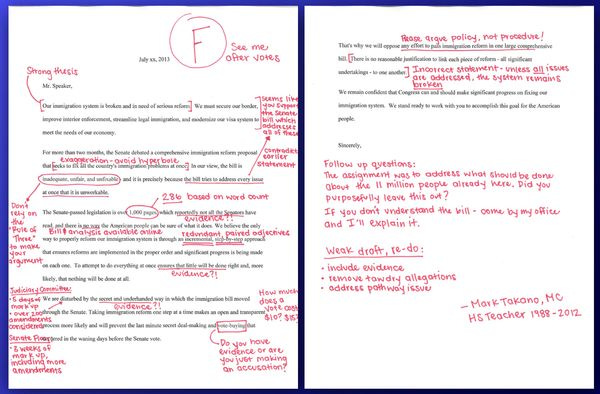 July xx, 2013
F
See me
after votes
Strong thesis
Mr. Speaker,
Our immigration system is broken and in need of serious reform. We must secure our border,
improve interior enforcement, streamline legal immigration, and modernize our visa system to
meet the needs of our economy.
Seems like
you support
the Senate
bill which
addresses
all of these
contradicts
earlier
statement
For more than two months, the Senate debated a comprehensive immigration reform proposal
exaggeration - avoid hyperbole
that seeks to fix all the country's immigration problems at once. In our view, the bill is
inadequate, unfair, and unfixable and it is precisely because the bill tries to address every issue
at once that it is unworkable.
Don't
rely on
the
"Rule of
Three"
to make
your
argument
286 based on word count
The Senate-passed legislation is over 1,000 pages which reportedly not all the Senators have
evidence?!
read, and there is no way the American people can be sure of what it does. We believe the only
Bill & analysis available online
redundant, paired adjectives
way to properly reform our immigration system is through an incremental, step-by-step approach
that ensures reforms are implemented in the proper order and significant progress is being made
on each one. To attempt to do everything at once ensures that little will be done right and, more
evidence?!
likely, that nothing will be done at all.
Judiciary Committee:
• 5 days of
mark up
• over 200
amendments
considered
Senate Floor
• 3 weeks of
mark up,
including more
amendments
We are disturbed by the secret and underhanded way in which the immigration bill moved
evidence?!
through the Senate. Taking immigration reform one step at a time makes an open and transparent
process more likely and will prevent the last minute secret deal-making and vote-buying that
occurred in the waning days before the Senate vote.
How much
does a
vote cost
$10? $15?
Do you have
evidence or are
you just making
an accusation?
Please argue policy, not procedure!
That's why we will oppose any effort to pass immigration reform in one large comprehensive
bill. There is no reasonable justification to link each piece of reform - all significant
undertakings - to one another.
Incorrect statement - unless all issues
are addressed, the system remains
broken
We remain confident that Congress can and should make significant progress on fixing our
immigration system. We stand ready to work with you to accomplish this goal for the American
people.
Sincerely,
Follow up questions:
The assignment was to address what should be done
about the 11 million people already here. Did you
purposefully leave this out?
If you don't understand the bill - come by my office
and I'll explain it.
Weak draft, re-do:
• include evidence
• remove tawdry allegations
• address pathway issue
- Mark Takano, MC
HS Teacher 1988-2012